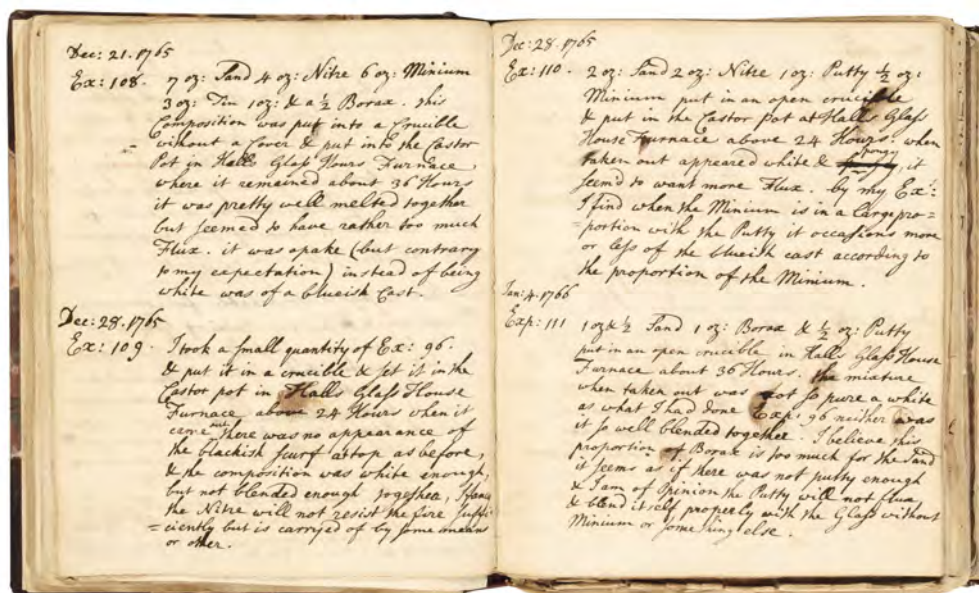 Dec: 21. 1765
Ex: 108. 7 oz: Sand 4 oz: Nitre 6 oz: Minium
3 oz: Tin 1 oz: & a ½ Borax. this
Composition was put into a Crucible
= without a Cover & put into the Castor
Pot in Halls Glass Hours Furnace,
where it remained about 36 Hours
it was pretty well melted together
but seemed to have rather too much
Flux. it was opake (but contrary
to my expectation) instead of being
white was of a blueish Cast.
Dec: 28. 1765
Ex: 109. I took a small quantity of Ex: 96.
& put it in a crucible & set it in the
Castor pot in Halls Glass House
Furnace above 24 Hours when it
came out there was no appearance of
the blackish scurf atop as before,
& the composition was white enough,
but not blended enough together, I fancy
the Nitre will not resist the fire suffi
=ciently but is carried of by some means
or other.
Dec: 28. 1765
Ex: 110. 2 oz: Sand 2 oz: Nitre 1 oz: Putty ½ oz:
Minium put in an open crucible
& put in the Castor Pot at Halls Glass
House Furnace above 24 Hours: when
taken out appeared white & spongy, it
seem'd to want more Flux. by my Ex:
I find when the Minium is in a large pro=
=portion with the Putty it occasions more
or less of the blueish cast according to
the proportion of the Minium.
Jan: 4. 1766
Exp: 111 1 oz & ½ Sand 1 oz: Borax & ½ oz: Putty
put in an open crucible in Halls Glass House
Furnace about 36 Hours. the mixture
when taken out was not so pure a white
as what I had done Exp: 96 neither was
it so well blended together. I believe this
proportion of Borax is too much for the Sand
it seems as if there was not putty enough
& I am of Opinion the Putty will not flux
& blend itself properly with the Glass without
Minium or something else.